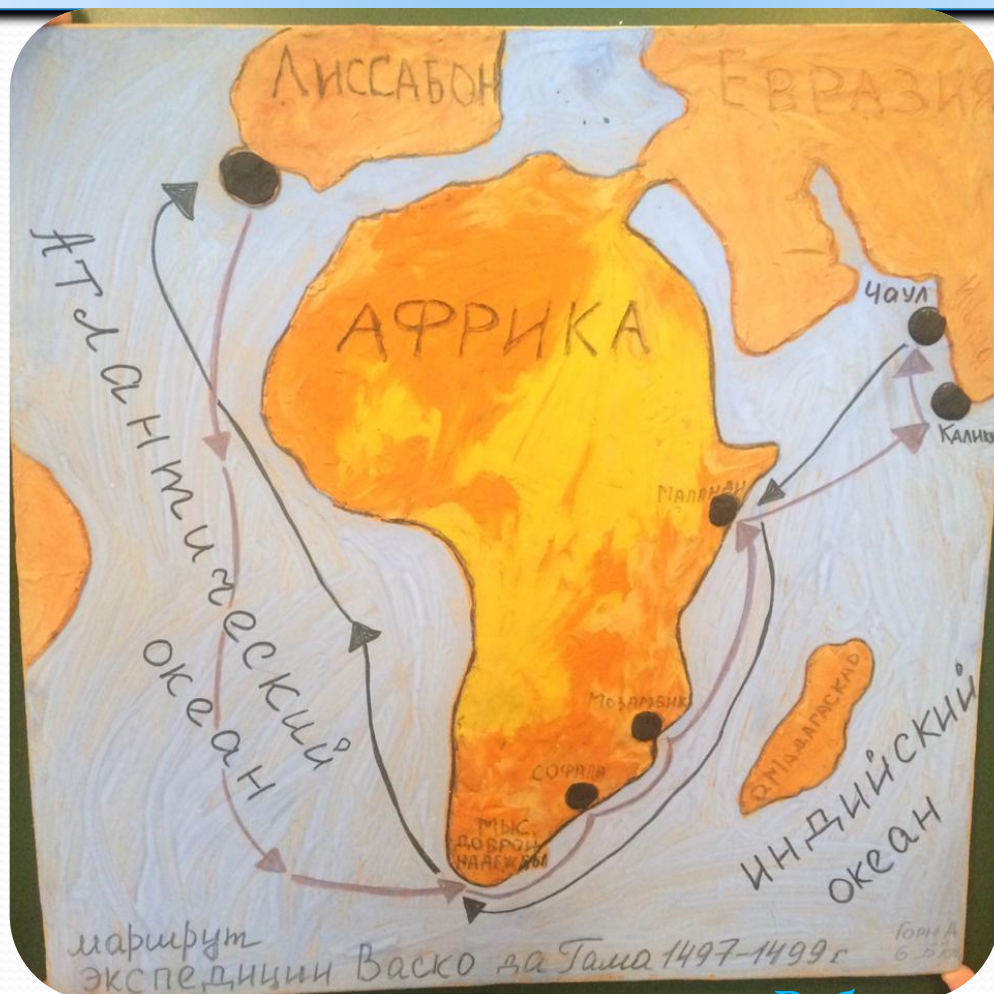 ЛИССАБОН
ЕВРАЗИЯ
АТЛАНТИЧЕСКИЙ
ОКЕАН
АФРИКА
ЧАУЛ
МОЗАМБИК
СОФАЛА
МЫС
ДОБРОЙ
НАДЕЖДЫ
О.МАДАГАСКАД
ИНДИЙСКИЙ
ОКЕАН
маршрут
экспедиции Васко да Гама 1497-1499 г